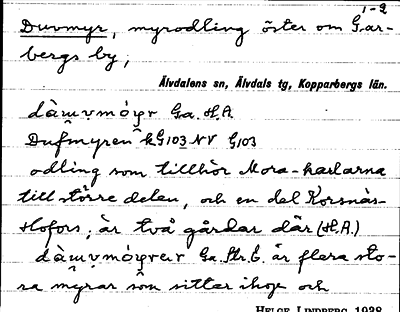 1-2
Duvmyr, myrodling öster om Gar-
bergs by;
Älvdalens sn, Älvdals tg, Kopparbergs län.
Ga. H.A.
Dufmyren kG103 NV G103
odling som tillhör Mora-karlarna
till större delen, och en del Korsnäs-
Hofors; är två gårdar där (H.A.)
Ga. Str. E. är flera sto-
ra myrar som sitter ihop och
HELGE LINDBERG 1928